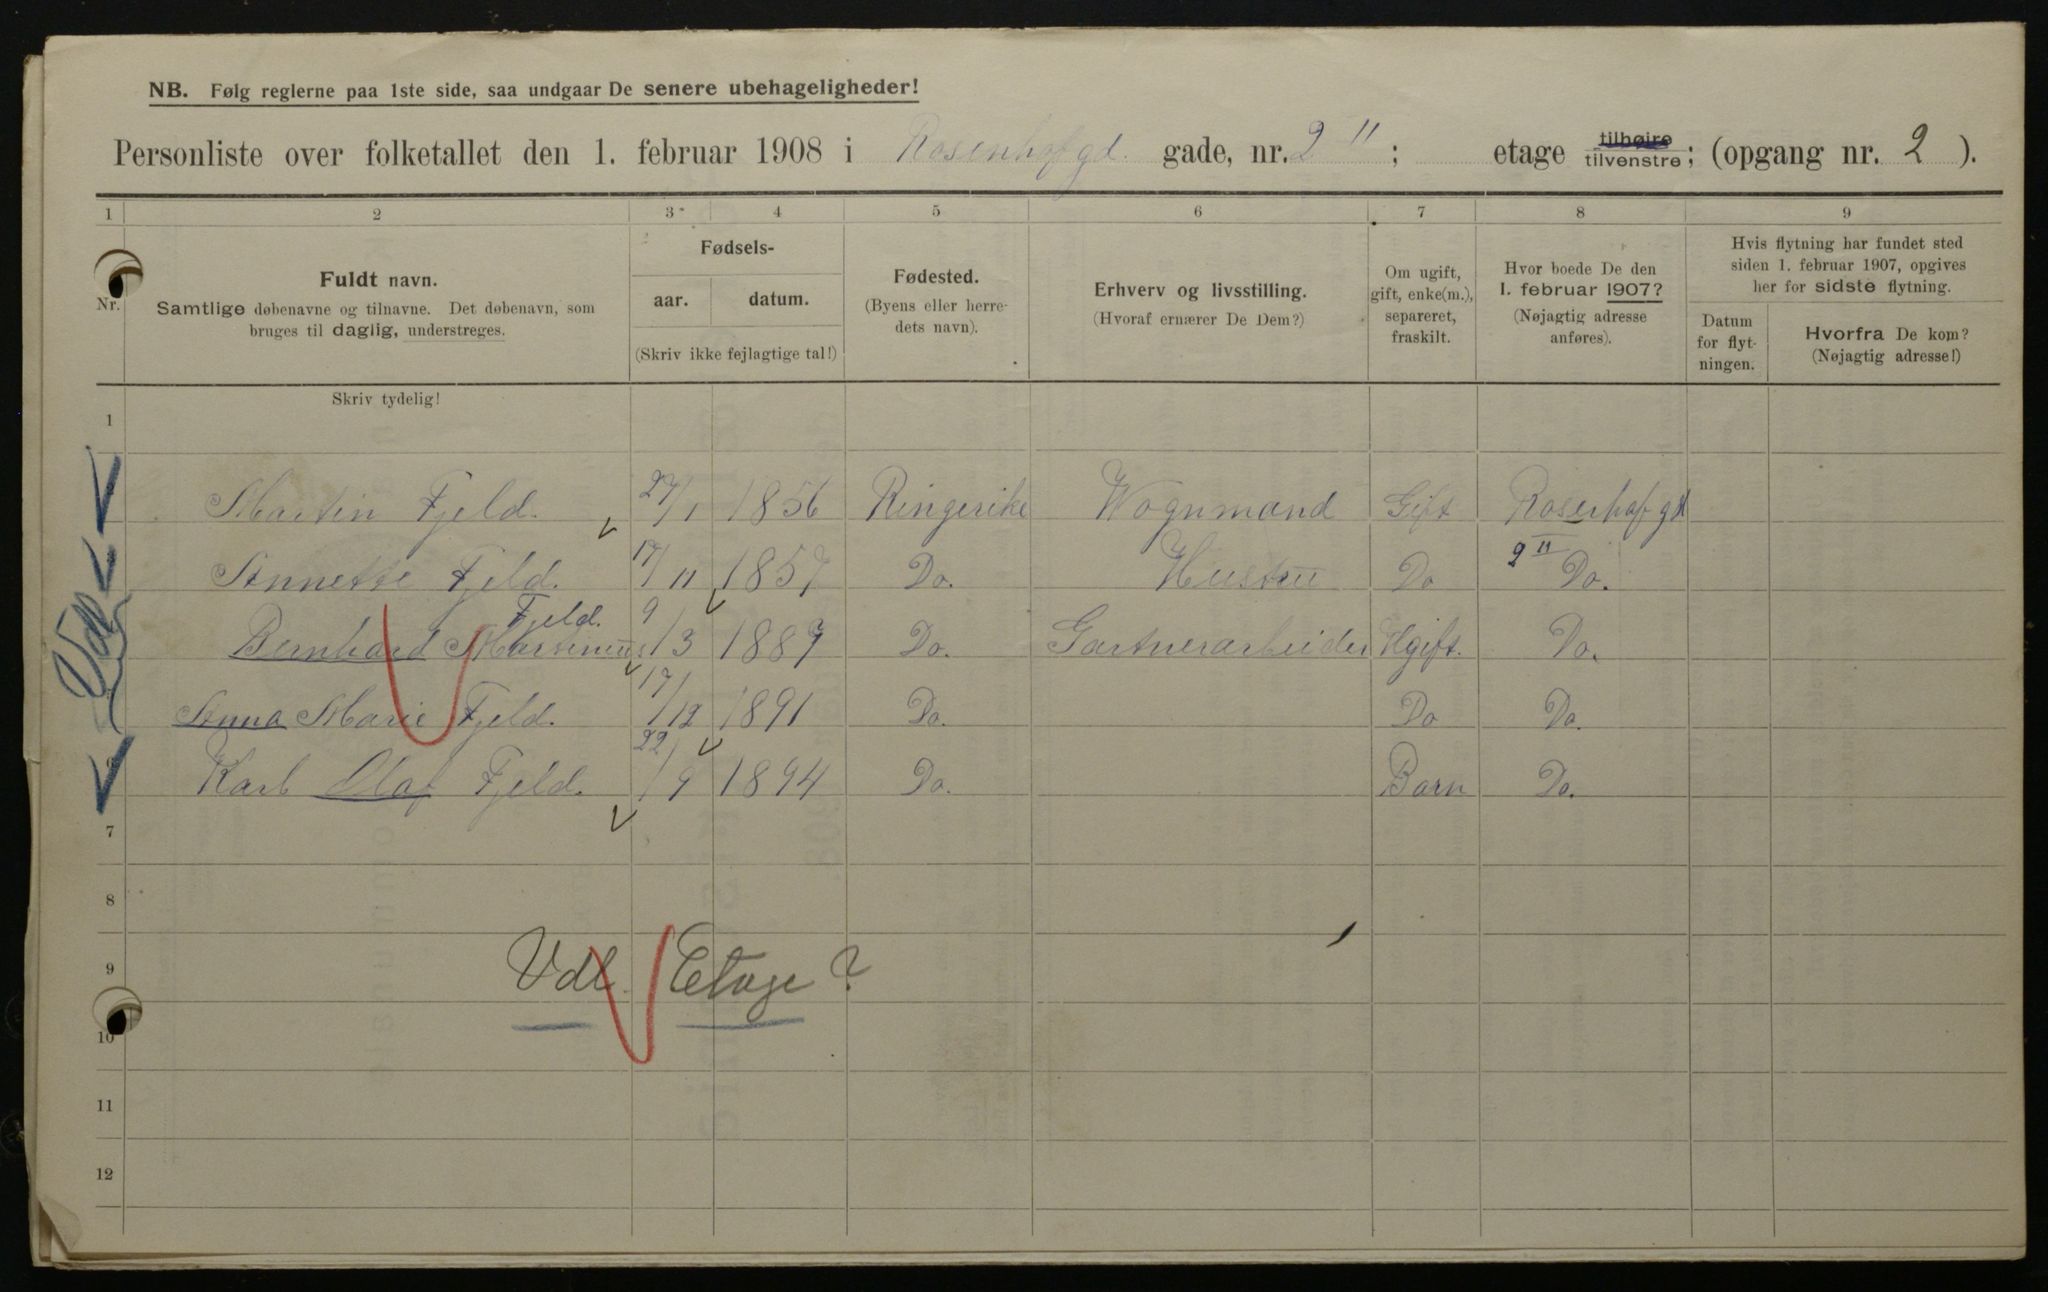 NB. Følg reglerne paa 1ste side, saa undgaar De senere ubehageligheder!
Personliste over folketallet den 1. februar 1908 i Rosenhofgd. gade, nr. 2 II ; etage tilhøire tilvenstre ; (opgang nr. 2 ).
1 2 3 4 5 6 7 8 9
Nr.
Fuldt navn.
Samtlige døbenavne og tilnavne. Det døbenavn, som
bruges til daglig, understreges.
Fødsels-
aar. datum.
(Skriv ikke fejlagtige tal!)
Fødested.
(Byens eller herre-
dets navn).
Erhverv og livsstilling.
(Hvoraf ernærer De Dem?)
Om ugift,
gift, enke(m.),
separeret,
fraskilt.
Hvor boede De den
1. februar 1907?
(Nøjagtig adresse
anføres).
Hvis flytning har fundet sted
siden 1. februar 1907, opgives
her for sidste flytning.
Datum
for flyt-
ningen.
Hvorfra De kom?
(Nøjagtig adresse!)
Skriv tydelig!
1
Martin Fjeld. 27/1 1856 Ringerike Wognmand Gift Rosenhofgd
2 II
Annette Fjeld. 17/11 1857 Do. Hustru Do Do.
Fjeld.
Bernhard Marsinius 9/3 1887 Do. Gartnerarbeider Ugift. Do.
Anna Marie Fjeld. 17/12 1891 Do. Do Do.
6 Karl Olaf Fjeld. 22/9 1894 Do. Barn Do.
Vdl
7
8
9
Vdl. Etage?
10
11
12